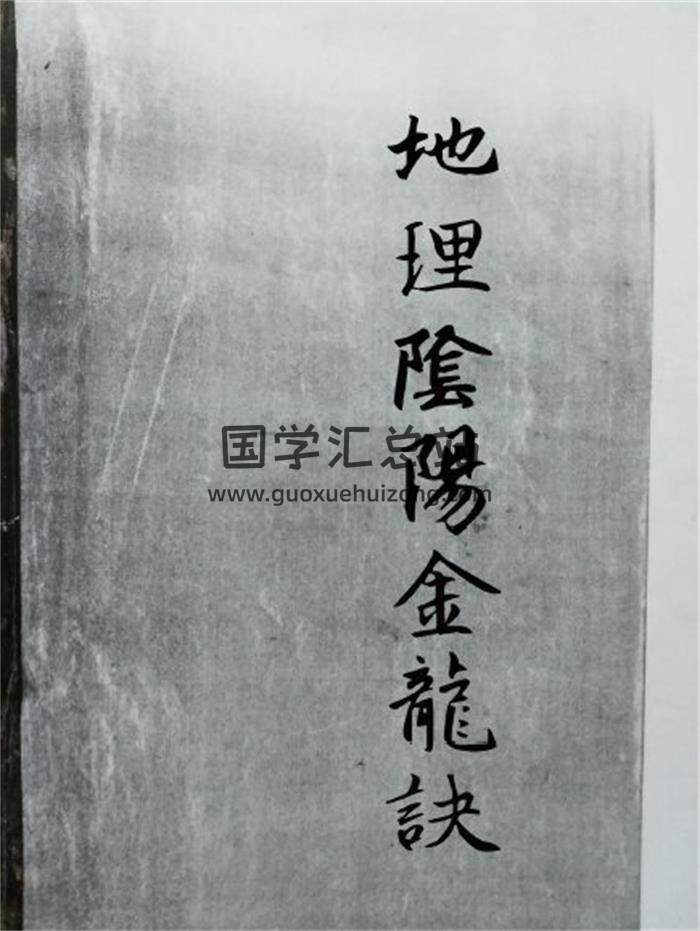 地理陰陽金龍訣
国学汇总站
www.guoxuehuizong.com